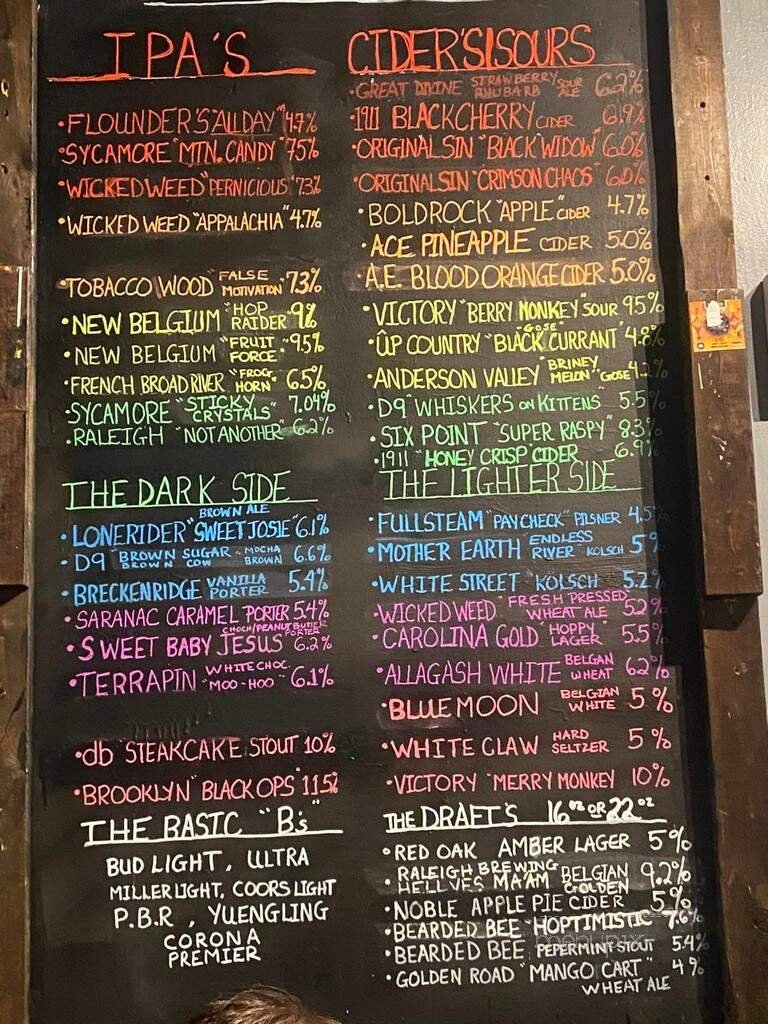 IPA'S
• FLOUNDER'S "ALL DAY" 4.7%
• SYCAMORE "MTN. CANDY" 7.5%
• WICKED WEED "PERNICIOUS" 7.3%
• WICKED WEED "APPALACHIA" 4.7%
• TOBACCO WOOD "FALSE MOTIVATION" 7.3%
• NEW BELGIUM "HOP RAIDER" 9%
• NEW BELGIUM "FRUIT FORCE" 9.5%
• FRENCH BROAD RIVER "FROG HORN" 6.5%
• SYCAMORE "STICKY CRYSTALS" 7.04%
• RALEIGH "NOT ANOTHER" 6.2%
THE DARK SIDE
• LONERIDER "SWEET JOSIE" BROWN ALE 6.1%
• D9 "BROWN SUGAR BROWN COW" MOCHA BROWN 6.6%
• BRECKENRIDGE VANILLA PORTER 5.4%
• SARANAC CARAMEL PORTER 5.4%
• SWEET BABY JESUS CHOCH/PEANUT BUTTER PORTER 6.2%
• TERRAPIN "WHITE CHOC. MOO-HOO" 6.1%
• db "STEAKCAKE STOUT 10%
• BROOKLYN "BLACK OPS" 11.5%
THE BASIC "B's"
BUD LIGHT, ULTRA
MILLER LIGHT, COORS LIGHT
P.B.R, YUENGLING
CORONA
PREMIER
CIDER'S/SOURS
• GREAT DIVINE STRAWBERRY RHUBARB SOUR ALE 6.2%
• 1911 BLACK CHERRY CIDER 6.9%
• ORIGINAL SIN "BLACK WIDOW" 6.0%
• ORIGINAL SIN "CRIMSON CHAOS" 6.0%
• BOLD ROCK "APPLE" CIDER 4.7%
• ACE PINEAPPLE CIDER 5.0%
• A.E. BLOOD ORANGE CIDER 5.0%
• VICTORY "BERRY MONKEY" SOUR 9.5%
• ÜP COUNTRY "BLACK CURRANT" GOSE 4.8%
• ANDERSON VALLEY "BRINEY MELON" GOSE 4.2%
• D9 "WHISKERS ON KITTENS" 5.5%
• SIX POINT "SUPER RASPY" 8.3%
• 1911 "HONEY CRISP" CIDER 6.9%
THE LIGHTER SIDE
• FULLSTEAM "PAYCHECK" PILSNER 4.5%
• MOTHER EARTH "ENDLESS RIVER" KOLSCH 5%
• WHITE STREET KOLSCH 5.2%
• WICKED WEED FRESH PRESSED WHEAT ALE 5.2%
• CAROLINA GOLD HOPPY LAGER 5.5%
• ALLAGASH WHITE BELGAN WHEAT 6.2%
• BLUE MOON BELGIAN WHITE 5%
• WHITE CLAW HARD SELTZER 5%
• VICTORY "MERRY MONKEY 10%
THE DRAFT'S 16 oz OR 22 oz
• RED OAK AMBER LAGER 5%
• RALEIGH BREWING HELLVES MA'AM BELGIAN GOLDEN 9.2%
• NOBLE APPLE PIE CIDER 5%
• BEARDED BEE "HOPTIMISTIC" 7.6%
• BEARDED BEE PEPERMINT STOUT 5.4%
• GOLDEN ROAD "MANGO CART" 4%
WHEAT ALE